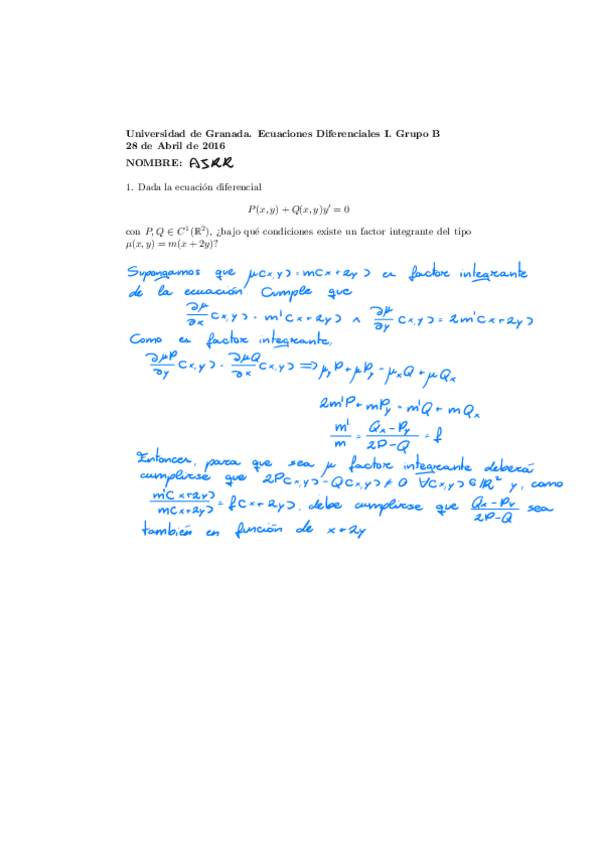 Universidad de Granada. Ecuaciones Diferenciales I. Grupo B
28 de Abril de 2016
NOMBRE: ASRR
1. Dada la ecuación diferencial
P(x, y) + Q(x, y)y′ = 0
con P, Q ∈ C¹(ℝ²), ¿bajo qué condiciones existe un factor integrante del tipo
μ(x, y) = m(x + 2y)?
Supongamos que μ(x,y) = m(x+2y) es factor integrante
de la ecuación. Cumple que
∂μ/∂x (x,y) = m'(x+2y) ∧ ∂μ/∂y (x,y) = 2m'(x+2y)
Como es factor integrante,
∂μP/∂y (x,y) = ∂μQ/∂x (x,y) ⟹ μ_y P + μP_y = μ_x Q + μQ_x
2m'P + mP_y = m'Q + mQ_x
m'/m = (Q_x - P_y)/(2P - Q) = f
Entonces, para que sea μ factor integrante deberá
cumplirse que 2P(x,y) - Q(x,y) ≠ 0 ∀(x,y) ∈ ℝ² y, como
m'(x+2y)/m(x+2y) = f(x+2y), debe cumplirse que (Q_x - P_y)/(2P - Q) sea
también en función de x+2y